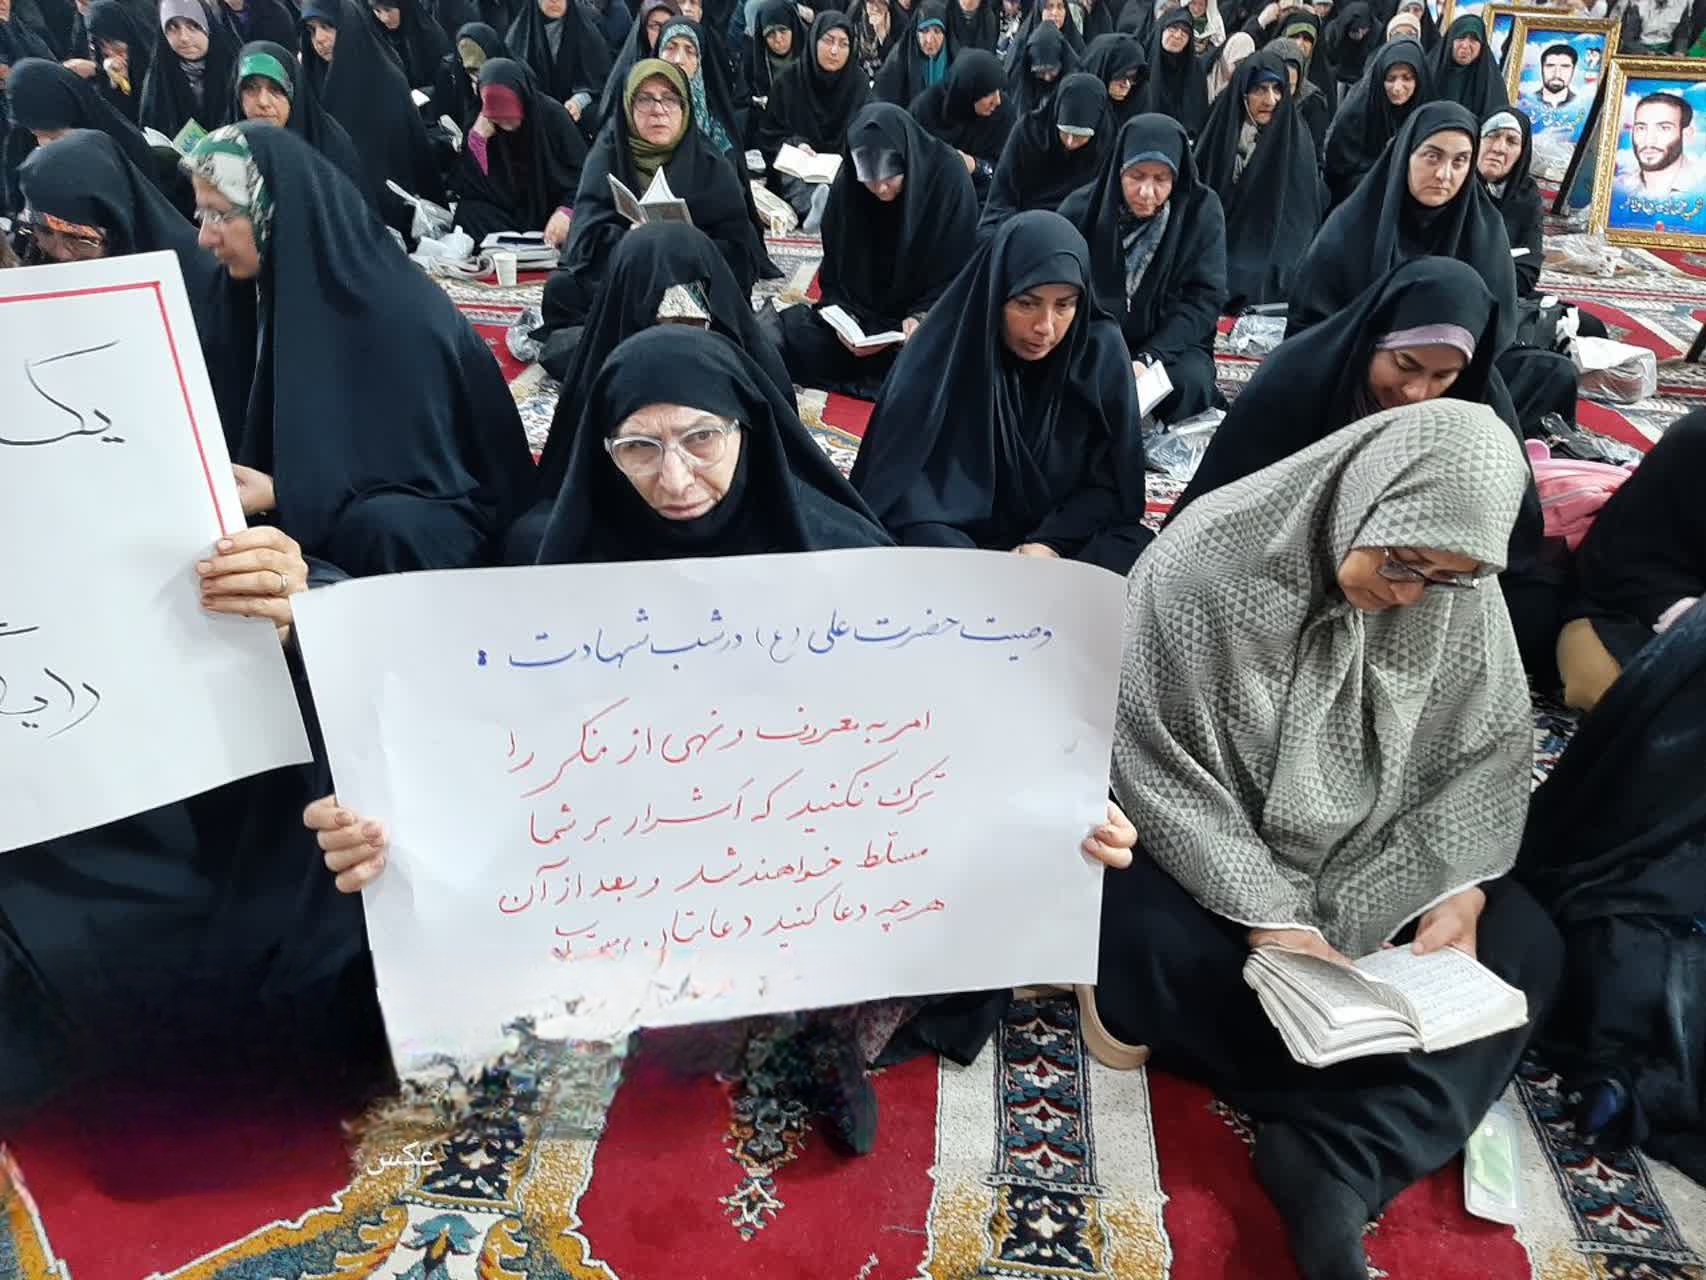 یک
وصیت حضرت علی (ع) در شب شهادت :
امر به معروف و نهی از منکر را
ترک نکنید که اَشرار بر شما
مسلّط خواهند شد و بعد از آن
هر چه دعا کنید دعایتان
عکس